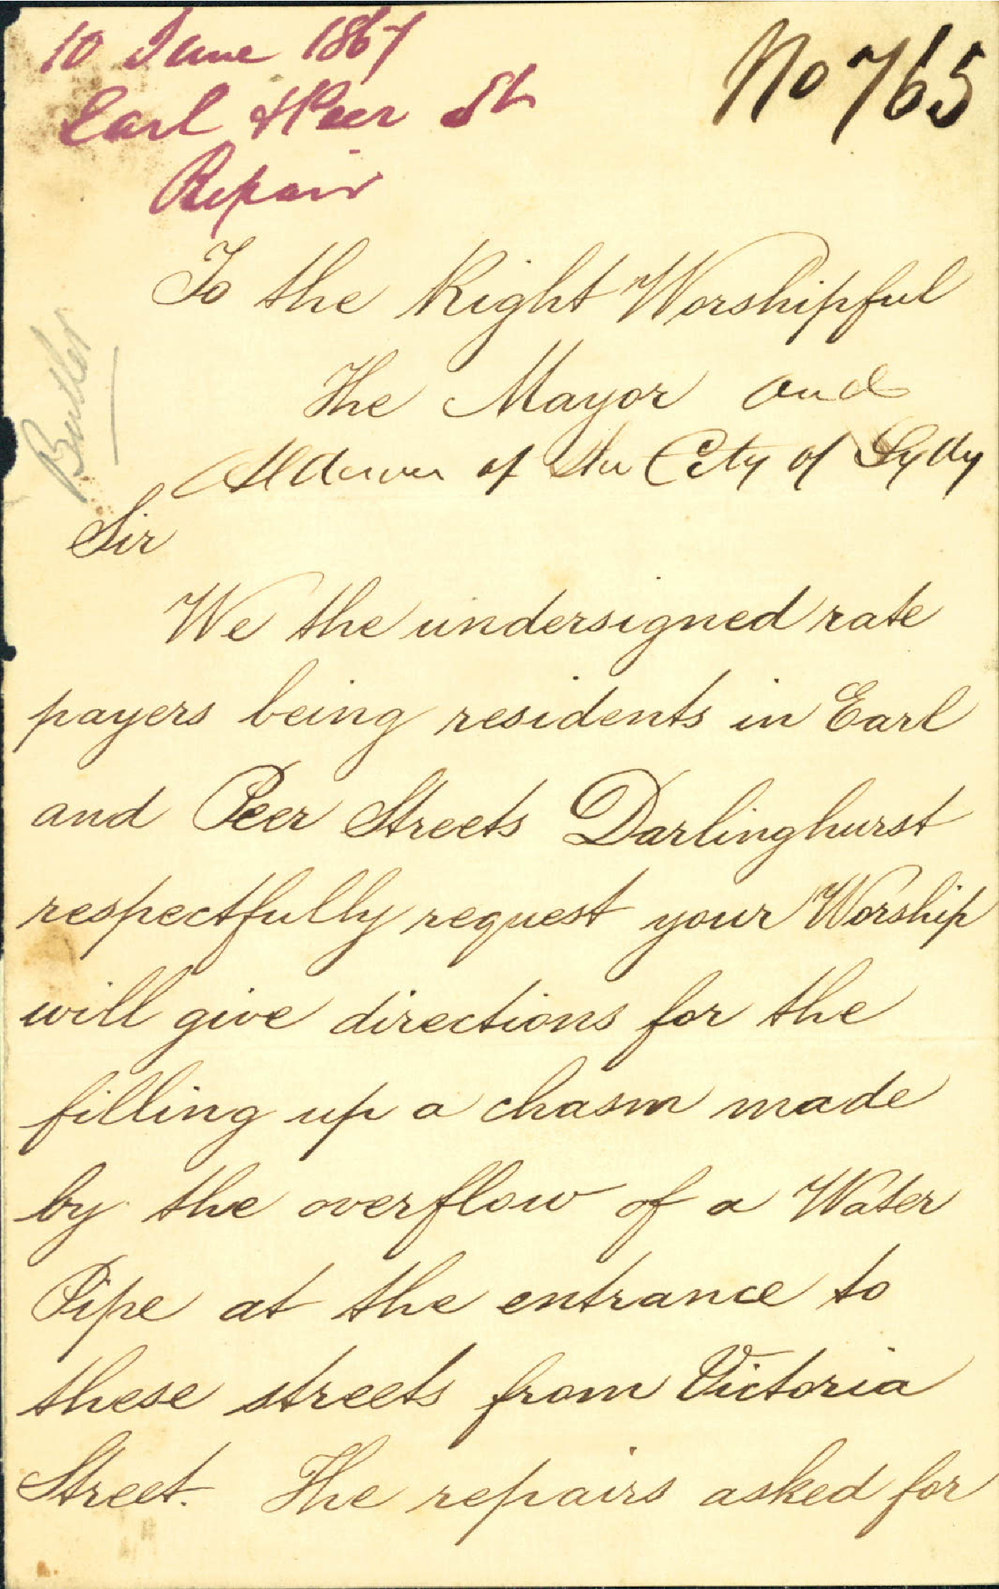 10 June 1867
No 765
Earl & Peer St
Repair
To the Right Worshipful
The Mayor and
Butler
Aldermen of the City of Sydny
Sir
We the undersigned rate
payers being residents in Earl
and Peer Streets Darlinghurst
respectfully request your Worship
will give directions for the
filling up a chasm made
by the overflow of a Water
Pipe at the entrance to
these streets from Victoria
Street. The repairs asked for